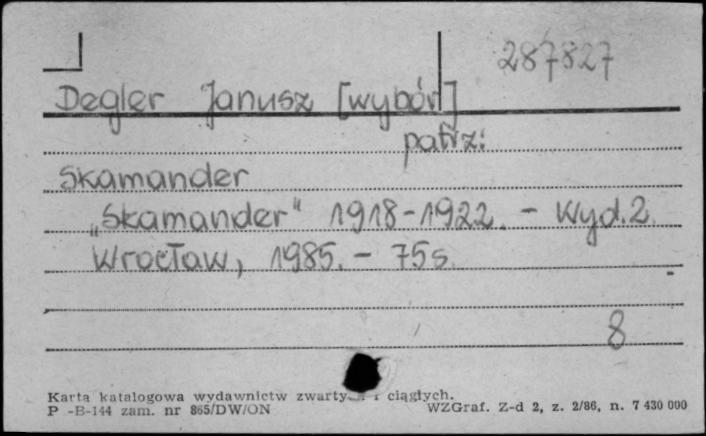 287827
Degler Janusz [wybór]
patrz:
Skamander
„Skamander" 1918-1922. - Wyd. 2.
Wrocław, 1985. - 75 s.
8
Karta katalogowa wydawnictw zwarty i ciągłych.
P -B-144 zam. nr 865/DW/ON WZGraf. Z-d 2, z. 2/86, n. 7 430 000